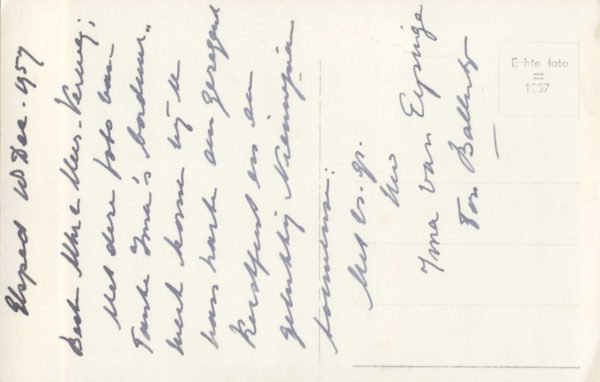 Elspeet 10 Dec. 1957
Beste Mhr & Mevr.
Met deze foto van
Tante Ima's borduur-
werk kome wij U
haast een gezegend
Kerstfeest en een
gelukkig Nieuwjaar
toewensen.
Met vr. gr.
Uw
Ima van Eysinga
Ton
Echte foto
1957